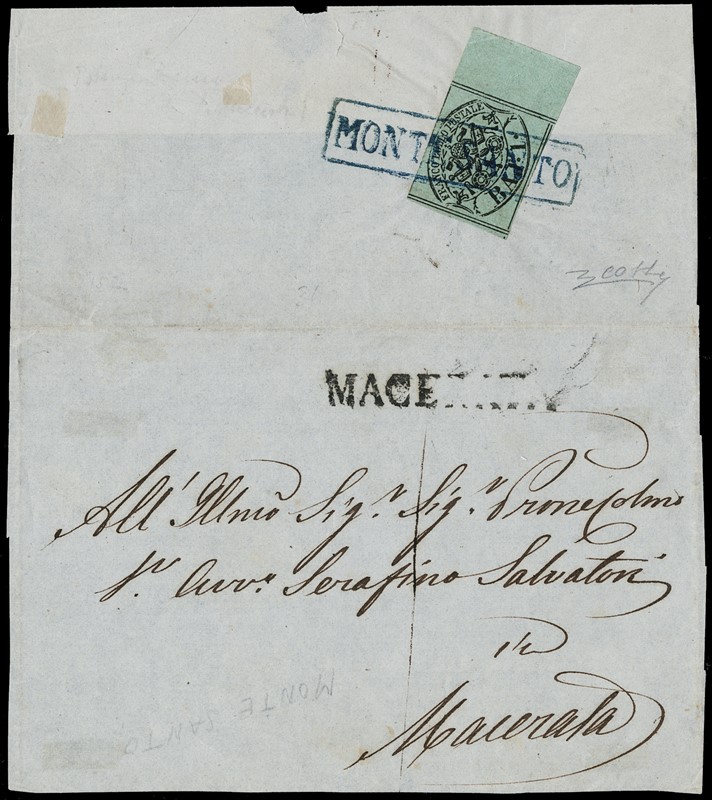 FRANCO BOLLO POSTALE
BAI. 1
MONTE SANTO
MACERATA
All' Illmo Sigr. Sigr. Prone Colmo
Sr. Avvo Serafino Salvatori
in
Macerata
MONTE SANTO